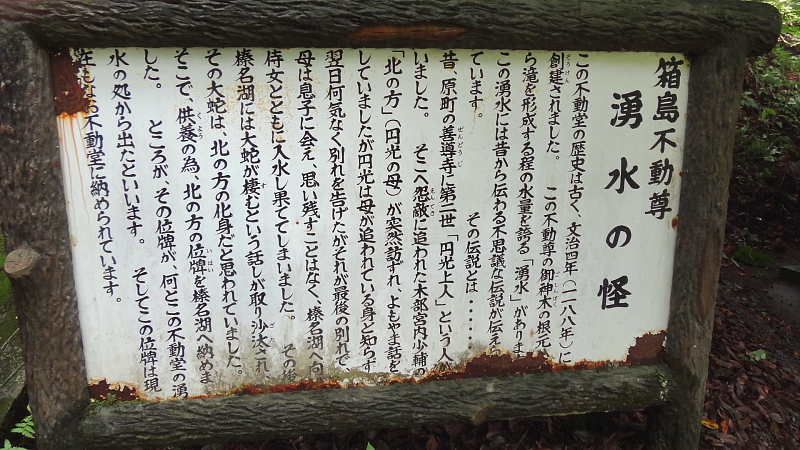 箱島不動尊
湧水の怪
この不動堂の歴史は古く、文治四年(一一八八年)に
創建されました。 この不動尊の御神木の根元か
ら滝を形成する程の水量を誇る「湧水」があります
この湧水には昔から伝わる不思議な伝説が伝えら
ています。 その伝説とは・・・・
昔、原町の善導寺に第二世「円光上人」という人が
いました。 そこへ怨敵に追われた木部宮内少輔の
「北の方」(円光の母)が突然訪ずれ、よもやま話を
していましたが円光は母が追われている身と知らず
翌日何気なく別れを告げたがそれが最後の別れで、
母は息子に会え、思い残すことはなく、榛名湖へ向
侍女とともに入水し果ててしまいました。 その後
榛名湖には大蛇が棲むという話しが取り沙汰され
その大蛇は、北の方の化身だと思われていました。
そこで、供養の為、北の方の位牌を榛名湖へ納めま
した。 ところが、その位牌が、何とこの不動堂の湧
水の処から出たといいます。 そしてこの位牌は現
在もなお不動堂に納められています。